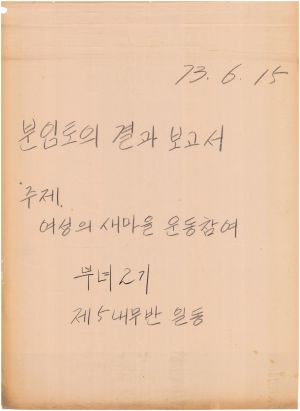 73. 6. 15
분임토의 결과 보고서
주제.
여성의 새마을 운동참여
부녀 2기
제5내무반 일동